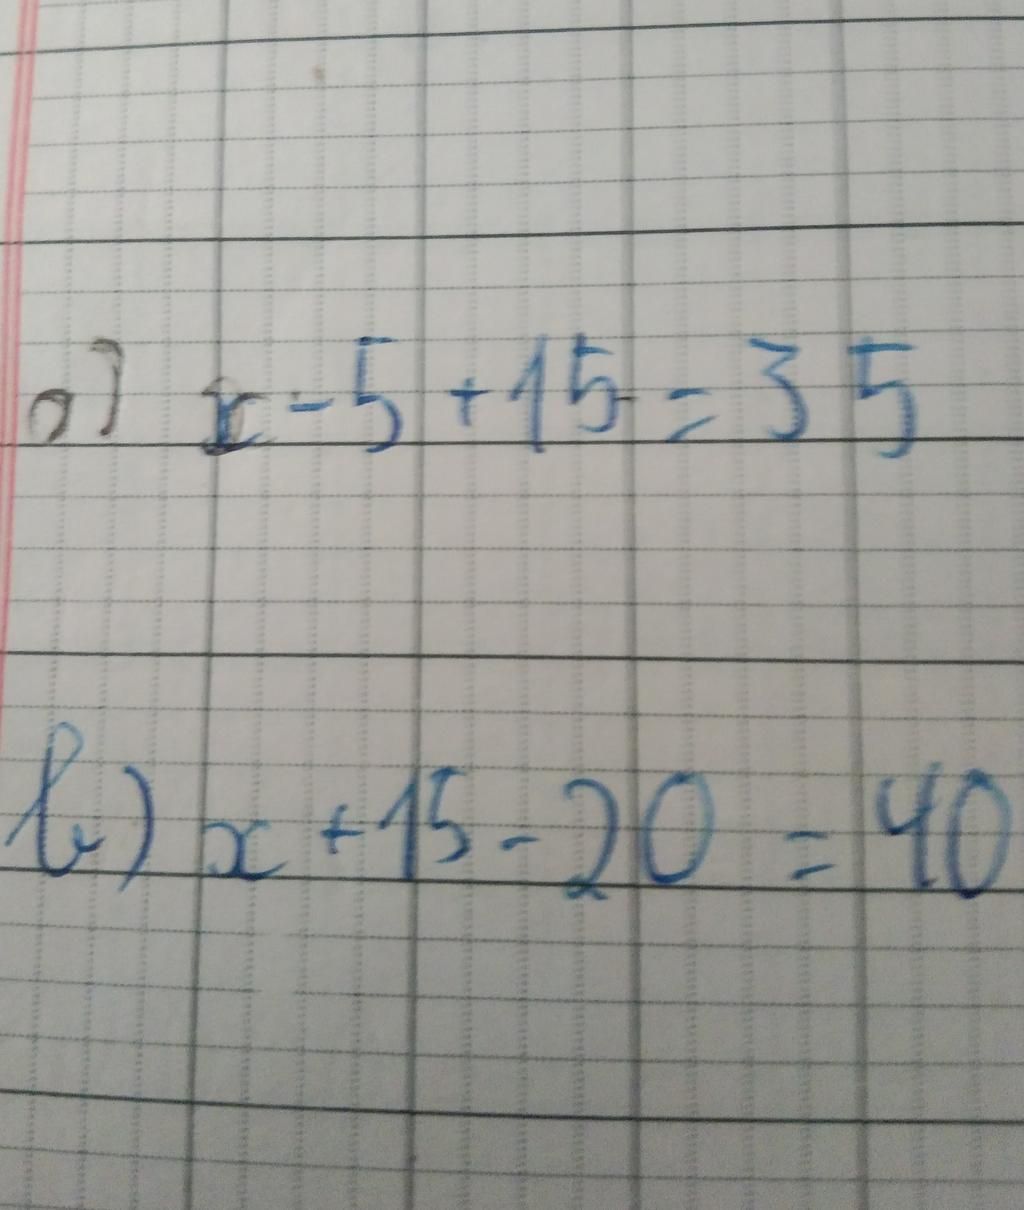 a) x - 5 + 15 = 35
b) x + 15 - 20 = 40